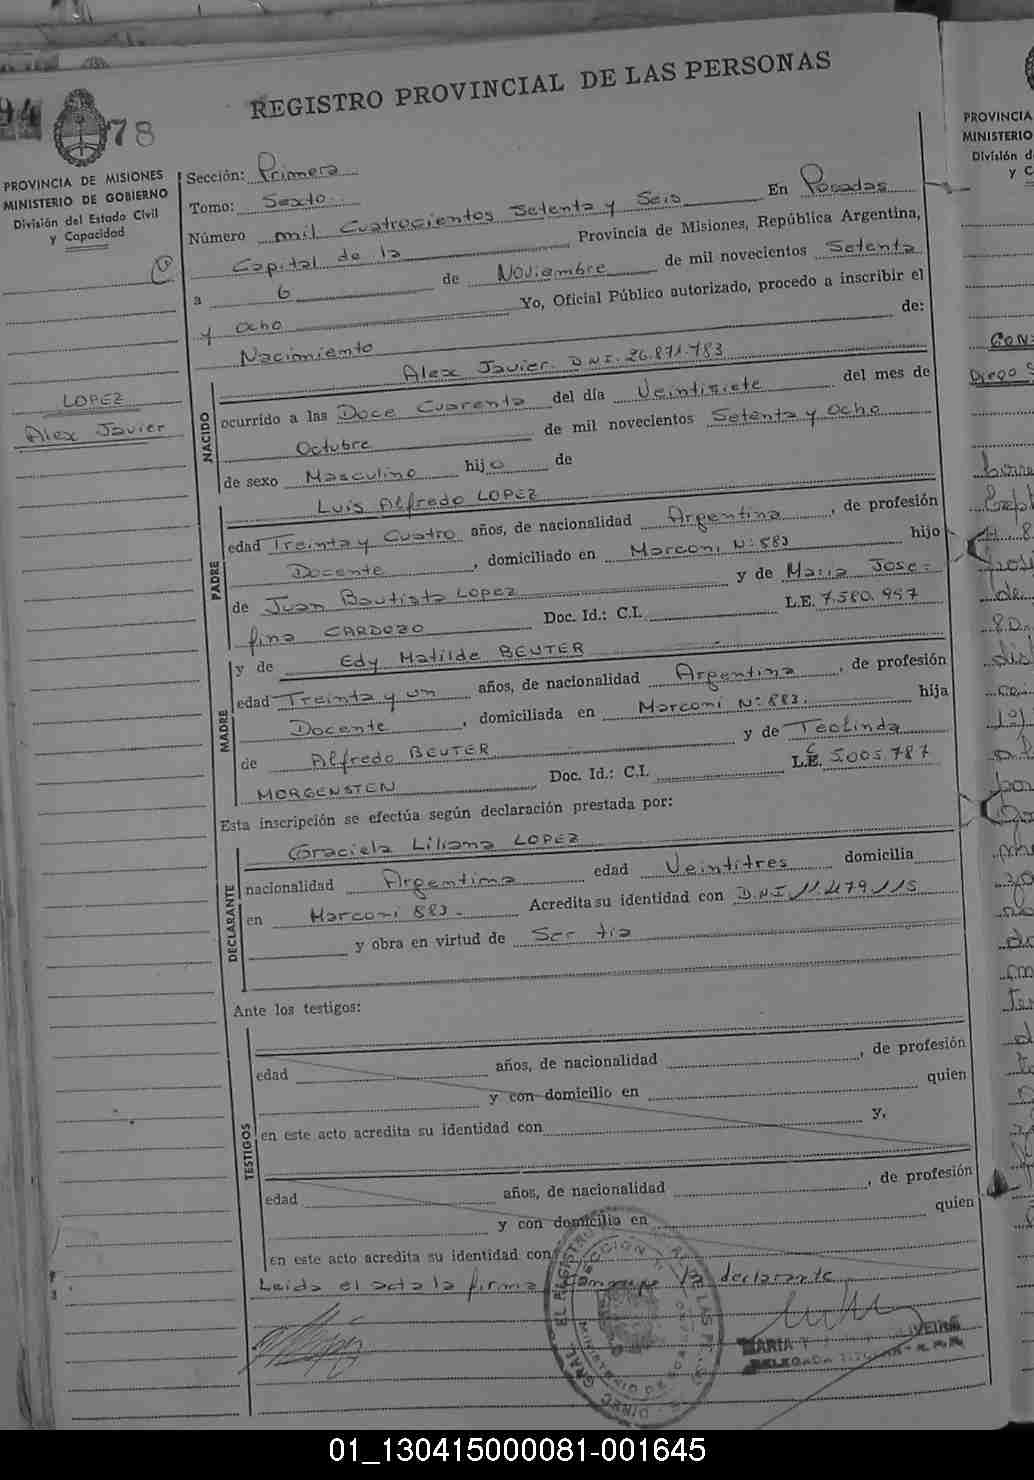 REGISTRO PROVINCIAL DE LAS PERSONAS
94
78
PROVINCIA DE MISIONES
MINISTERIO DE GOBIERNO
División del Estado Civil
y Capacidad
LOPEZ
Alex Javier
Sección: Primera
Tomo: Sexto
Número mil Cuatrocientos Setenta y Seis En Posadas
Capital de la Provincia de Misiones, República Argentina,
a 6 de Noviembre de mil novecientos Setenta
y Ocho Yo, Oficial Público autorizado, procedo a inscribir el
Nacimiento de:
NACIDO
Alex Javier. D.N.I. 26.871.783
ocurrido a las Doce Cuarenta del día Veintisiete del mes de
Octubre de mil novecientos Setenta y Ocho
de sexo Masculino hijo de
PADRE
Luis Alfredo LOPEZ
edad Treinta y Cuatro años, de nacionalidad Argentina, de profesión
Docente, domiciliado en Marconi Nº 883 hijo
de Juan Bautista Lopez y de Maria Jose=
fina CARDOZO Doc. Id.: C.I. L.E. 7.580.957
MADRE
y de Edy Matilde BEUTER
edad Treinta y un años, de nacionalidad Argentina, de profesión
Docente, domiciliada en Marconi Nº 883. hija
de Alfredo BEUTER y de Teolinda
MORGENSTEN Doc. Id.: C.I. L.C. 5.005.787
Esta inscripción se efectúa según declaración prestada por:
DECLARANTE
Graciela Liliana LOPEZ
nacionalidad Argentina edad Veintitres domicilia
en Marconi 883. Acredita su identidad con D.N.I. 11.479.115
y obra en virtud de Ser tia
Ante los testigos:
TESTIGOS
edad años, de nacionalidad , de profesión
y con domicilio en quien
en este acto acredita su identidad con y,
edad años, de nacionalidad , de profesión
y con domicilio en quien
en este acto acredita su identidad con
Leida el acta la firma la declarante
MARIA
DELEGADA TITULAR
PROVINCIA
MINISTERIO
División d
y C
Diego
01_130415000081-001645